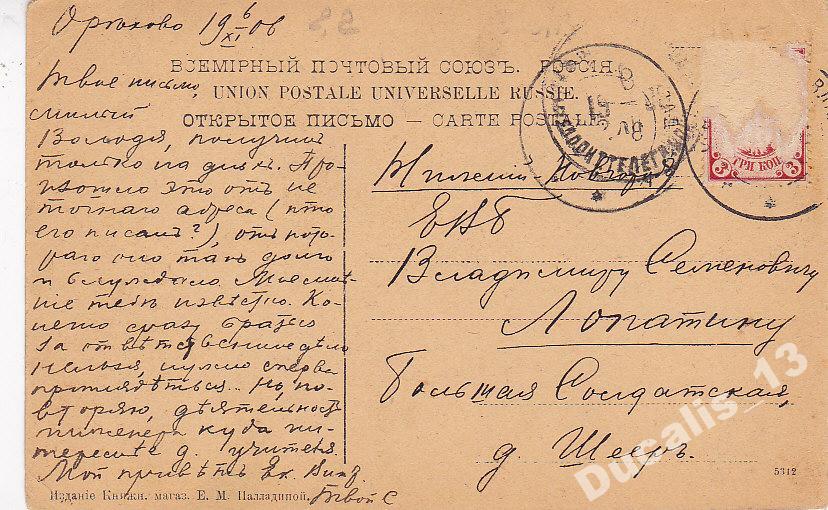 Орѣхово 19 6/XI 06
ВСЕМІРНЫЙ ПОЧТОВЫЙ СОЮЗЪ. РОССІЯ.
UNION POSTALE UNIVERSELLE RUSSIE.
ОТКРЫТОЕ ПИСЬМО — CARTE POSTALE
Твое письмо,
милый
Володя, получилъ
только на дняхъ. Про-
изошло это отъ не
точнаго адреса (кто
его писалъ?), отъ кото-
раго оно такъ долго
и блуждало. Мое мнѣ-
ніе тебѣ извѣстно. Ко-
нечно сразу браться
за отвѣтственное дѣло
нельзя, нужно сперва
приглядѣться. Но, по-
вторяю, дѣятельность
инженера куда ин-
тереснѣе д. учителя.
Мой привѣтъ Ек. Викт.
Твой С
Нижній Новгородъ
ЕВБ
Владимиру Семеновичу
Лопатину
Большая Солдатская,
д. Шееръ.
3 ТРИ КОП. 3
5312
Изданіе Книжн. магаз. Е. М. Палладиной.
Ducalis_13